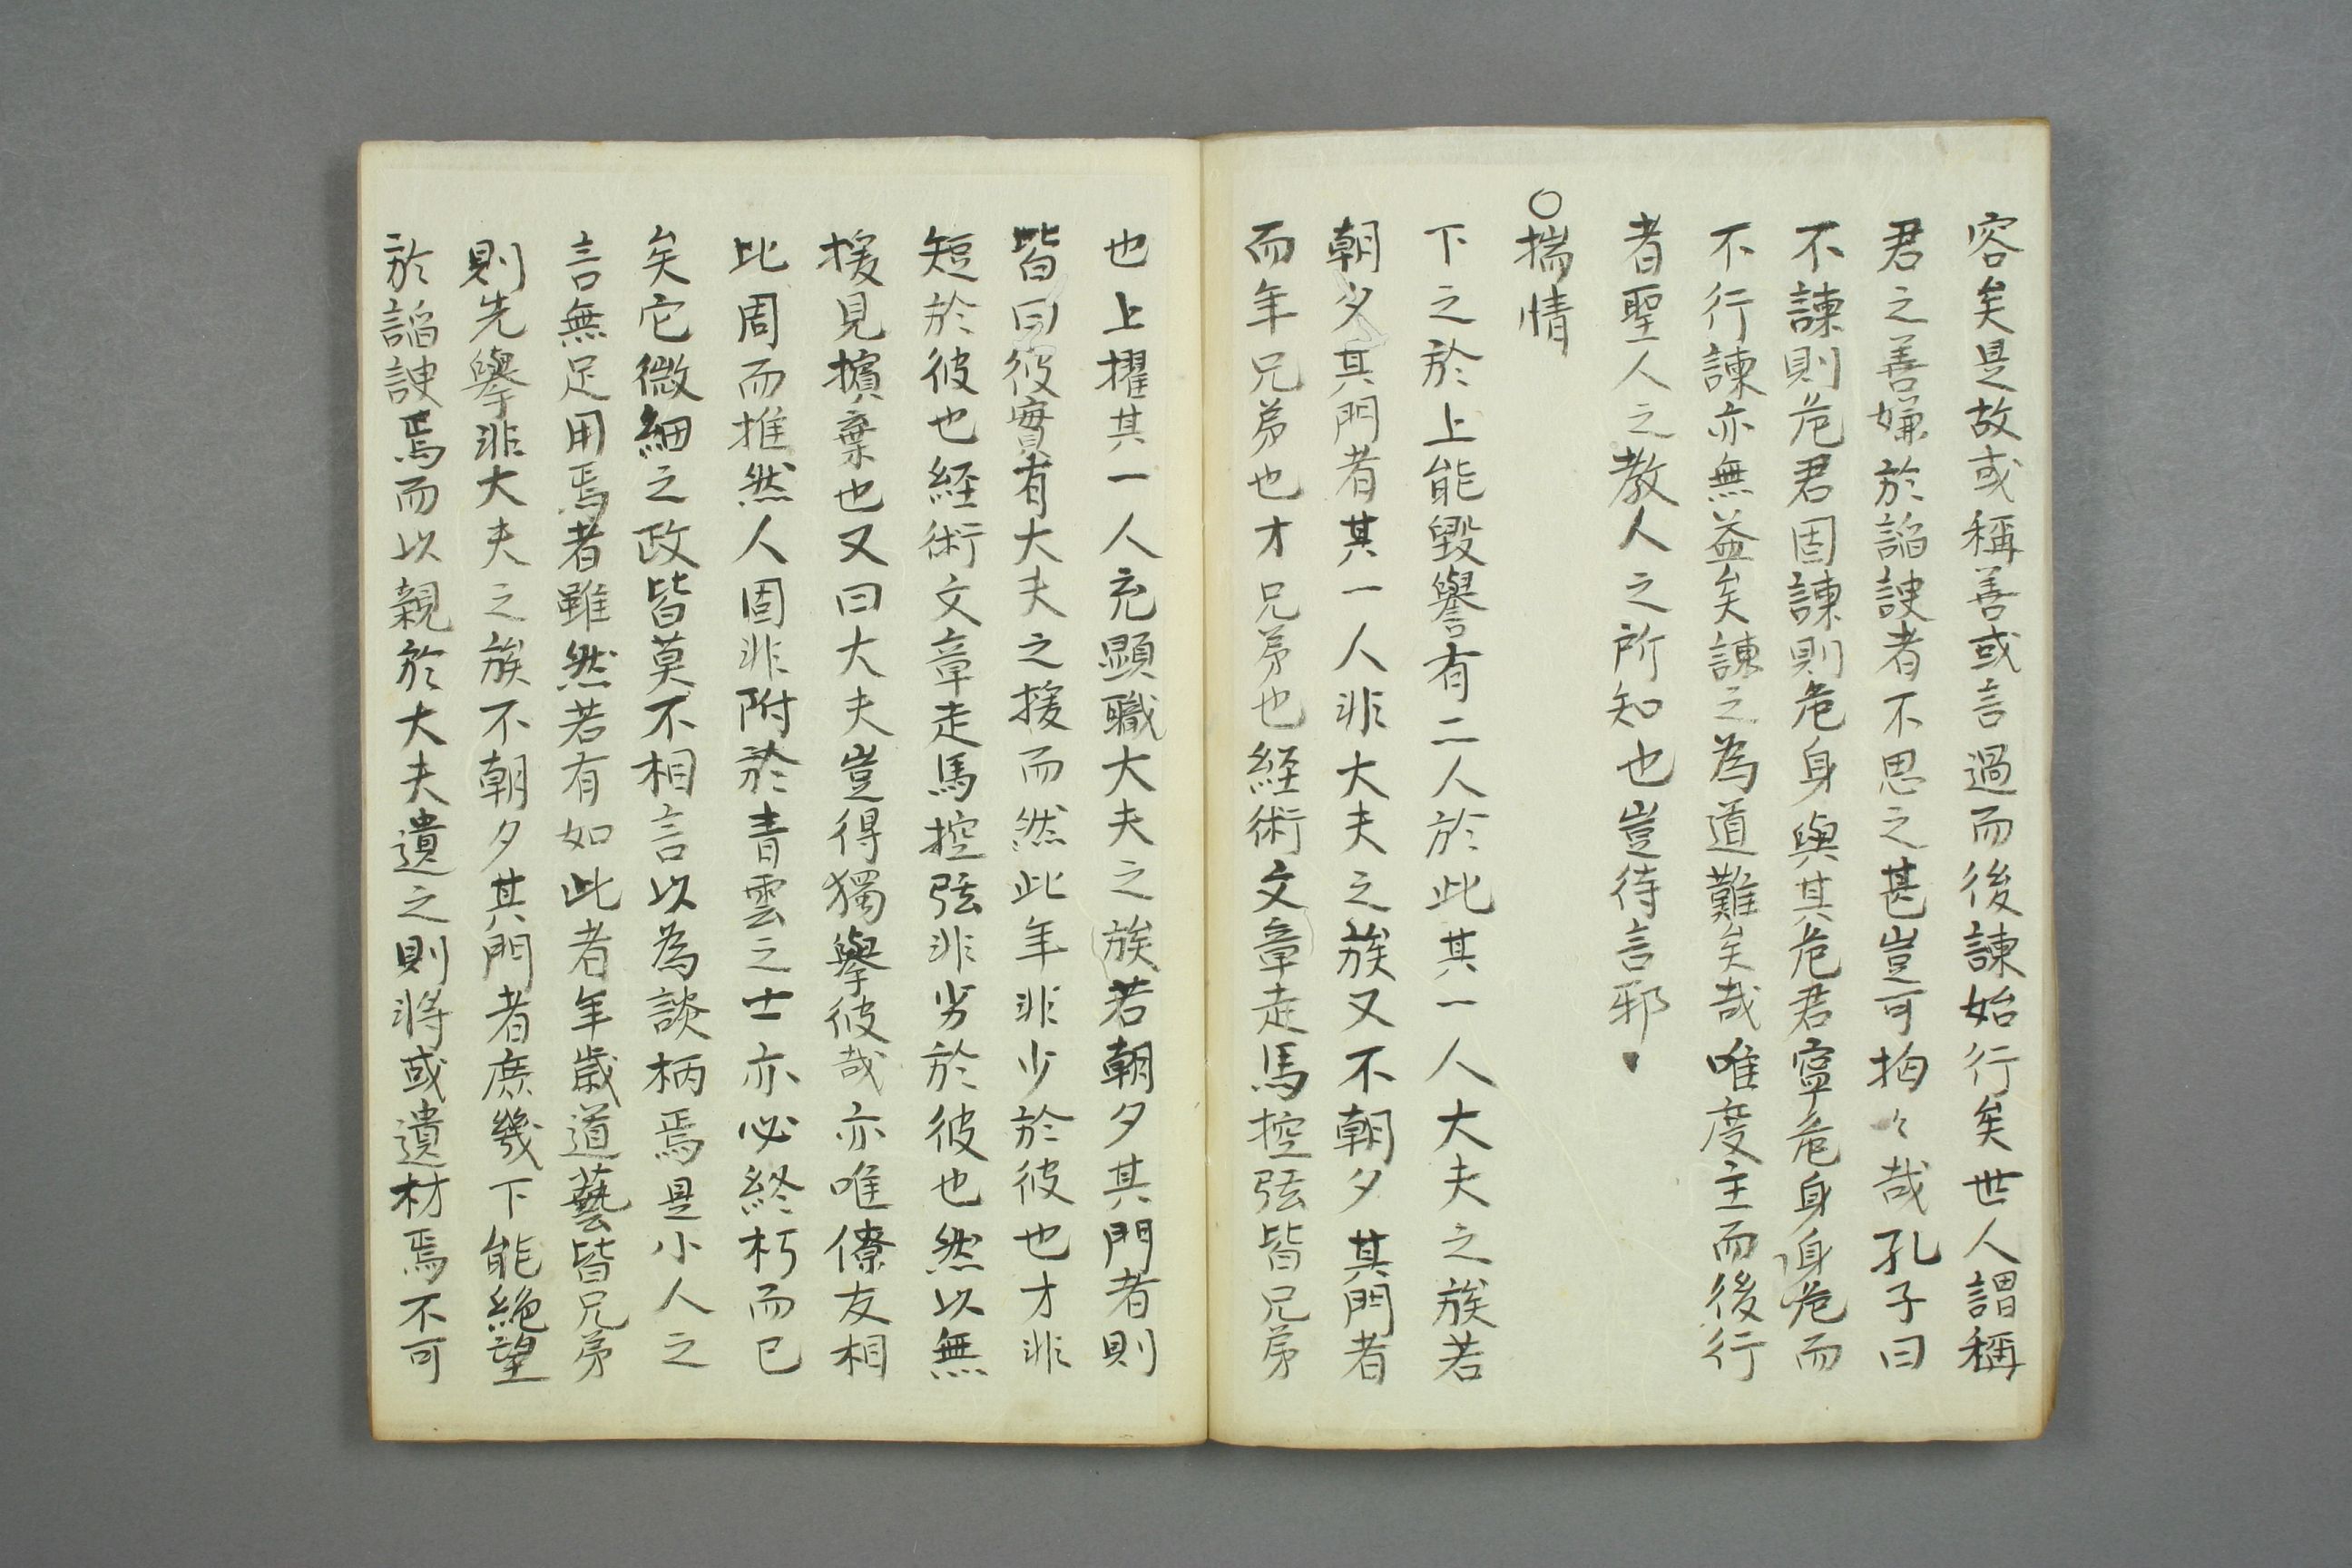 容矣是故或稱善或言過而後諫始行矣世人謂稱
君之善嫌於諂諛者不思之甚豈可拘々哉孔子曰
不諫則危君固諫則危身與其危君寧危身身危而
不行諫亦無益矣諫之為道難矣哉唯度主而後行
者聖人之教人之所知也豈待言邪
○揣情
下之於上能毀譽有二人於此其一人大夫之族若
朝夕其門者其一人非大夫之族又不朝夕其門者
而年兄弟也才兄弟也経術文章走馬控弦皆兄弟
也上擢其一人充顯職大夫之族若朝夕其門者則
皆曰彼實有大夫之援而然此年非少於彼也才非
短於彼也経術文章走馬控弦非劣於彼也然以無
援見擯棄也又曰大夫豈得獨擧彼哉亦唯僚友相
比周而推然人固非附於青雲之士亦必終朽而已
矣它微細之政皆莫不相言以為談柄焉是小人之
言無足用焉者雖然若有如此者年歲道藝皆兄弟
則先擧非大夫之族不朝夕其門者庶幾下能絶望
於諂諛焉而以親於大夫遺之則將或遺材焉不可